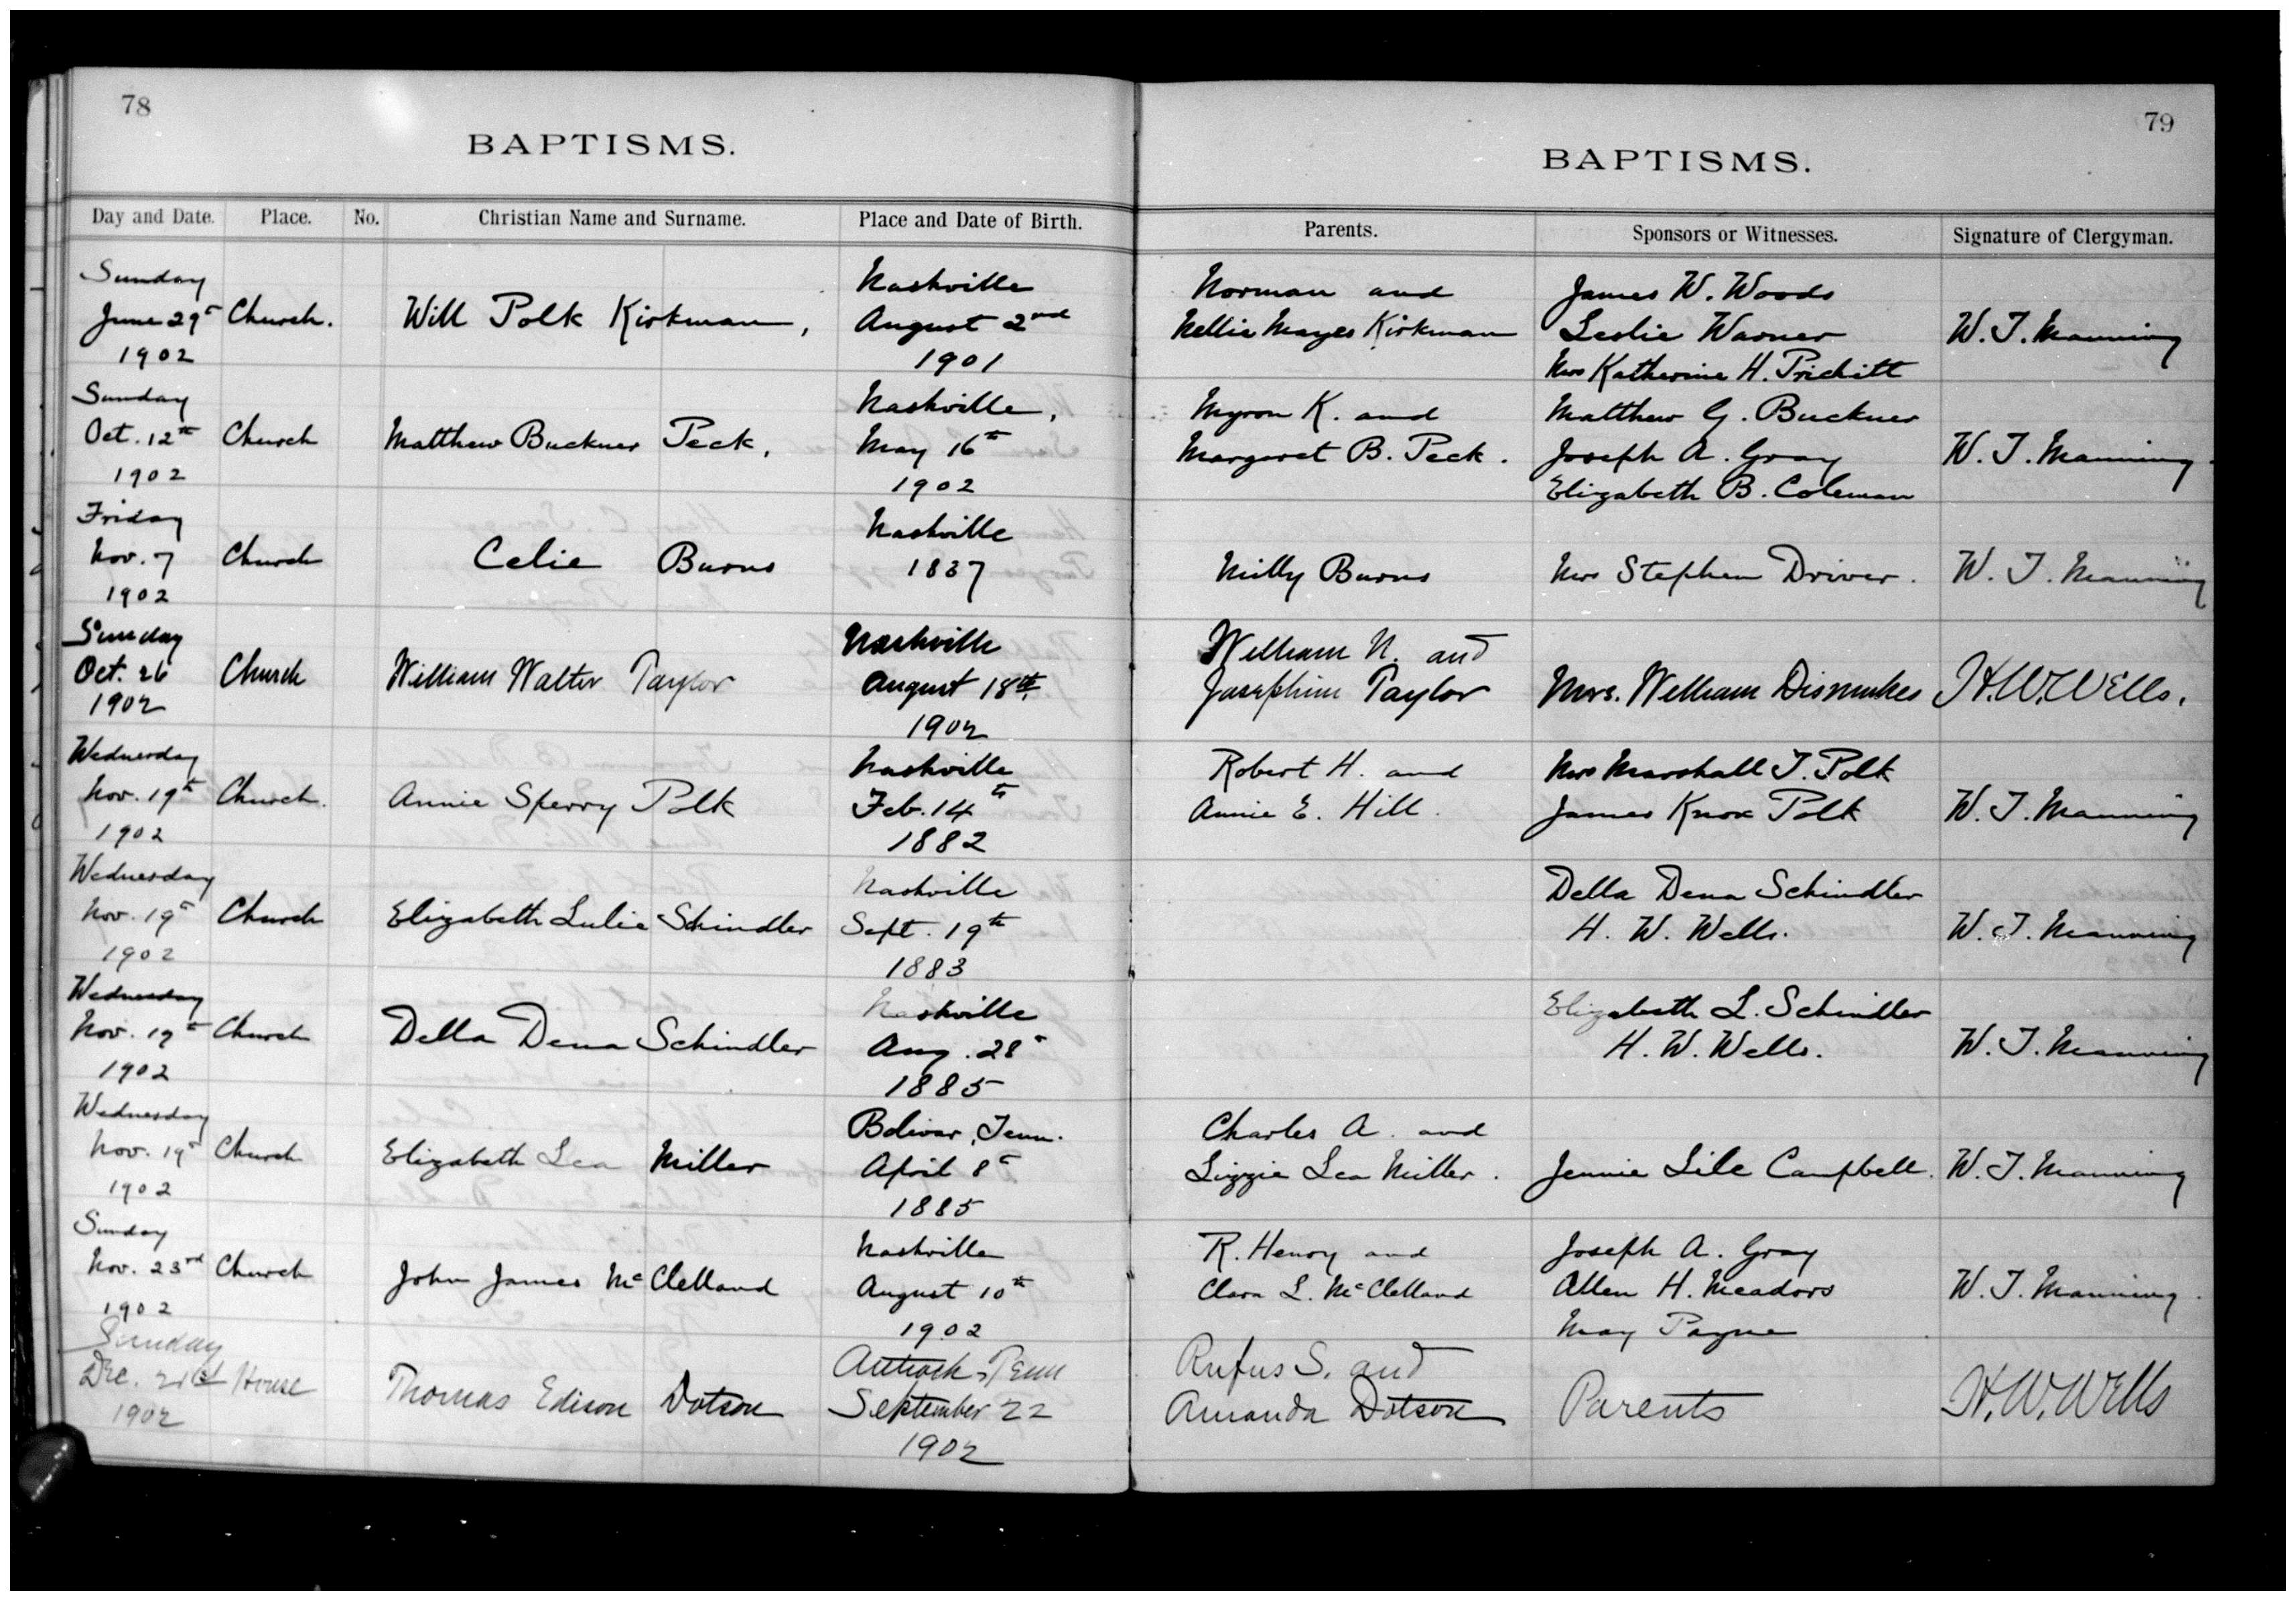 78
BAPTISMS.
Day and Date. Place. No. Christian Name and Surname. Place and Date of Birth.
Sunday
June 29th Church. Will Polk Kirkman,
1902
Nashville
August 2nd
1901
Sunday
Oct. 12th Church Matthew Buckner Peck,
1902
Nashville,
May 16th
1902
Friday
Nov. 7 Church Celie Burns
1902
Nashville
1837
Sunday
Oct. 26 Church William Walter Taylor
1902
Nashville
August 18th
1902
Wednesday
Nov. 19th Church. Annie Sperry Polk
1902
Nashville
Feb. 14th
1882
Wednesday
Nov. 19th Church Elizabeth Lulie Schindler
1902
Nashville
Sept. 19th
1883
Wednesday
Nov. 19th Church Della Dena Schindler
1902
Nashville
Aug. 28th
1885
Wednesday
Nov. 19th Church Elizabeth Lea Miller
1902
Bolivar, Tenn.
April 8th
1885
Sunday
Nov. 23rd Church John James McClelland
1902
Nashville
August 10th
1902
Sunday
Dec. 21st House Thomas Edison Dotson
1902
Antioch, Tenn
September 22
1902
79
BAPTISMS.
Parents. Sponsors or Witnesses. Signature of Clergyman.
Norman and
Nellie Mayes Kirkman
James W. Woods
Leslie Warner
Mrs Katherine H. Prichitt
W. T. Manning
Myron K. and
Margaret B. Peck.
Matthew G. Buckner
Joseph A. Gray
Elizabeth B. Coleman
W. T. Manning.
Milly Burns
Mrs Stephen Driver.
W. T. Manning
William N. and
Josephine Taylor
Mrs. William Dismukes
H. W. Wells.
Robert H. and
Annie E. Hill.
Mrs Marshall T. Polk
James Knox Polk
W. T. Manning
Della Dena Schindler
H. W. Wells.
W. T. Manning
Elizabeth L. Schindler
H. W. Wells.
W. T. Manning
Charles A. and
Lizzie Lea Miller.
Jennie Lile Campbell.
W. T. Manning
R. Henry and
Clara L. McClelland
Joseph A. Gray
Allen H. Meadors
May Payne
W. T. Manning.
Rufus S. and
Amanda Dotson
Parents
H. W. Wells